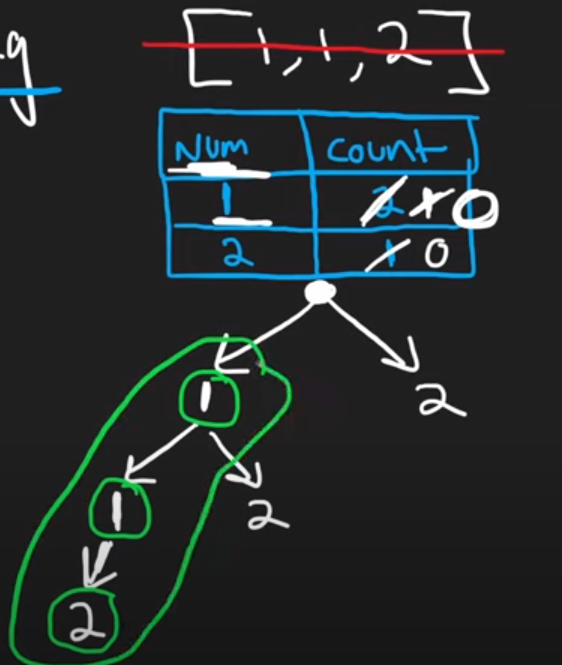 g
[1,1,2]
Num count
1 2 1 0
2 1 0
1 2
1 2
2